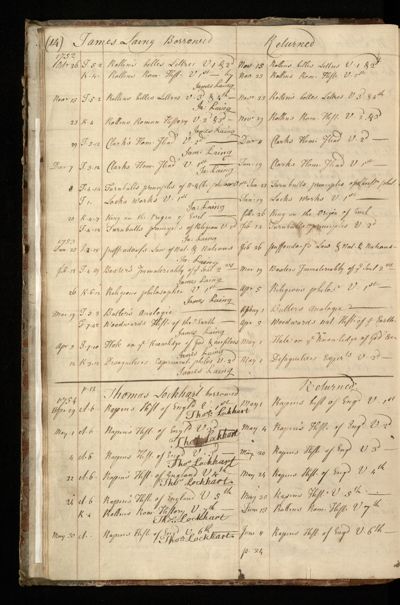 (14) James Laing Borrowed Returned
1752
26 T.5.2 Rollins belles Lettres V 1 & 2d Nov 15 Rollins belles Lettres V 1 & 2d
K.4. Rollins Rom. Hist. V 1st Nov 22 Rollins Rom. Hist. V 1st
James Laing
Nov 15 T.5.2 Rollins belles Lettres V 3 & 4th Nov 22 Rollins belles Lettres V 3 & 4th
Ja: Laing
22 K.4 Rollins Roman History V 2 & 3d Nov 29 Rollins Rom. Hist. V 2 & 3d
James Laing
29 Clarks Hom. Iliad V 2 Clarks Hom. Iliad V 2d
Jam: Laing
Clarks Hom. Iliad V 1st Jan 19 Clarks Hom. Iliad V 1st
Ja: Laing
Turnbulls principles of Turnbulls principles of
T.1. Locks Works V 1st Jan 19 Locks Works V 1st
Ja: Laing
King on the Origin of Evil Feb 26 King on the Origin of Evil
Turnbulls principles of Religion V 2d Turnbulls principles V 2
1753 Ja: Laing
Puffendorfs Law of Nat. & Nations Feb 26 Puffendorfs Law of Nat. & Nations
Ja: Laing
Baxters Immateriality of ye Soul 2 Mar 19 Baxters Immateriality of ye Soul 2
James Laing
26 K.6.12 Religious philosopher V 1st Apr 5 Religious philos. V 1st
James Laing
Mar 19 T.3.3 Butlers Analogie Butlers Analogie
Woodwards Hist. of the Earth Apr 5 Woodwards nat. Hist. of ye Earth
James Laing
Apr 5 Hale on ye knowledge of God & May 1 Hale on ye knowledge of God &
James Laing
12 K.3.12 Desaguliers Experiment. philos. V 2 May 1 Desaguliers V 2
James Laing
Thomas Lockhart borrowed Returned
1754
Apr 29 A.6 Rapins Hist. of Engd V 1st May 1 Rapins Hist. of Engd V 1st
Tho: Lockhart
May 1 A.6 Rapins Hist. of Engd V 2d May 4 Rapins Hist. of Engd V 2
Tho Lockhart
4 A.6 Rapins Hist. of Engd V 3 May 20 Rapins Hist. of Engd V 3
Tho: Lockhart
A.6 Rapins Hist. of England V 4th May 24 Rapins Hist. of Engd V 4th
Tho: Lockhart
A.6 Rapins Hist. of England V 5th May 30 Rapins Hist. V 5th
K.4 Rollins Rom. History V 7th Jun 13 Rollins Rom. Hist. V 7th
Tho: Lockhart
May 30 A. Rapins Hist. of Engd V 6th June 4 Rapins Hist. of Engd V 6th
Tho: Lockhart
p. 24